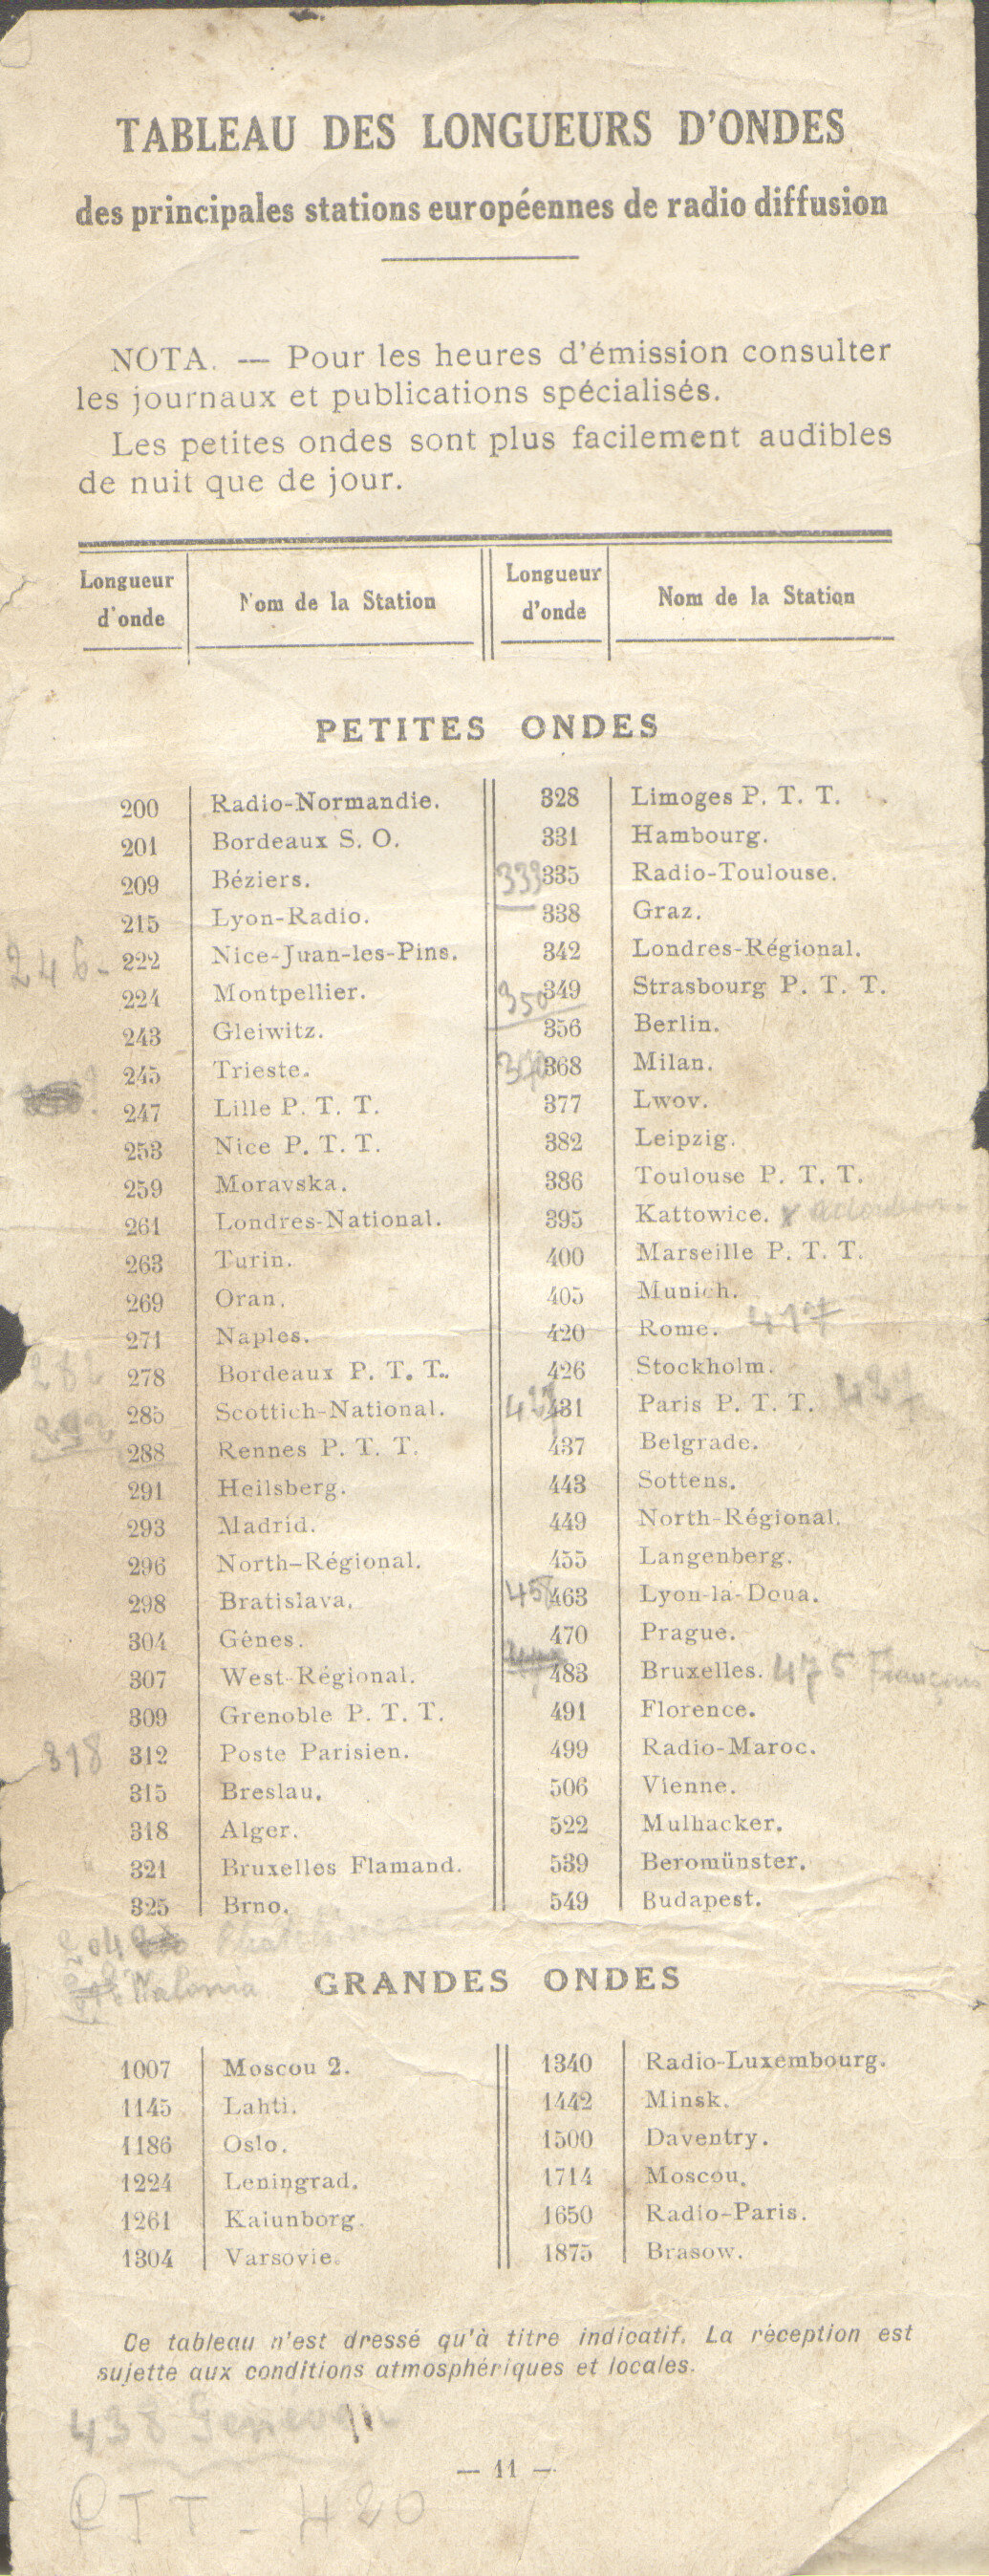 TABLEAU DES LONGUEURS D'ONDES
des principales stations européennes de radio diffusion
NOTA. — Pour les heures d'émission consulter
les journaux et publications spécialisés.
Les petites ondes sont plus facilement audibles
de nuit que de jour.
Longueur d'onde Nom de la Station Longueur d'onde Nom de la Station
PETITES ONDES
200 Radio-Normandie. 328 Limoges P. T. T.
201 Bordeaux S. O. 331 Hambourg.
209 Béziers. 339 335 Radio-Toulouse.
215 Lyon-Radio. 338 Graz.
246- 222 Nice-Juan-les-Pins. 342 Londres-Régional.
224 Montpellier. 350 349 Strasbourg P. T. T.
243 Gleiwitz. 356 Berlin.
245 Trieste. 370 368 Milan.
247 Lille P. T. T. 377 Lwov.
253 Nice P. T. T. 382 Leipzig.
259 Moravska. 386 Toulouse P. T. T.
261 Londres-National. 395 Kattowice.
263 Turin. 400 Marseille P. T. T.
269 Oran. 405 Munich.
271 Naples. 420 Rome. 417
282 278 Bordeaux P. T. T. 426 Stockholm.
285 Scottich-National. 431 Paris P. T. T. 427
292 288 Rennes P. T. T. 437 Belgrade.
291 Heilsberg. 443 Sottens.
293 Madrid. 449 North-Régional.
296 North-Régional. 455 Langenberg.
298 Bratislava. 458 463 Lyon-la-Doua.
304 Gênes. 470 Prague.
307 West-Régional. 483 Bruxelles. 475 Français
309 Grenoble P. T. T. 491 Florence.
318 312 Poste Parisien. 499 Radio-Maroc.
315 Breslau. 506 Vienne.
318 Alger. 522 Mulhacker.
321 Bruxelles Flamand. 539 Beromünster.
325 Brno. 549 Budapest.
204
GRANDES ONDES
1007 Moscou 2. 1340 Radio-Luxembourg.
1145 Lahti. 1442 Minsk.
1186 Oslo. 1500 Daventry.
1224 Leningrad. 1714 Moscou.
1261 Kaiunborg. 1650 Radio-Paris.
1304 Varsovie. 1875 Brasow.
Ce tableau n'est dressé qu'à titre indicatif. La réception est
sujette aux conditions atmosphériques et locales.
438
— 11 —
PTT - 420